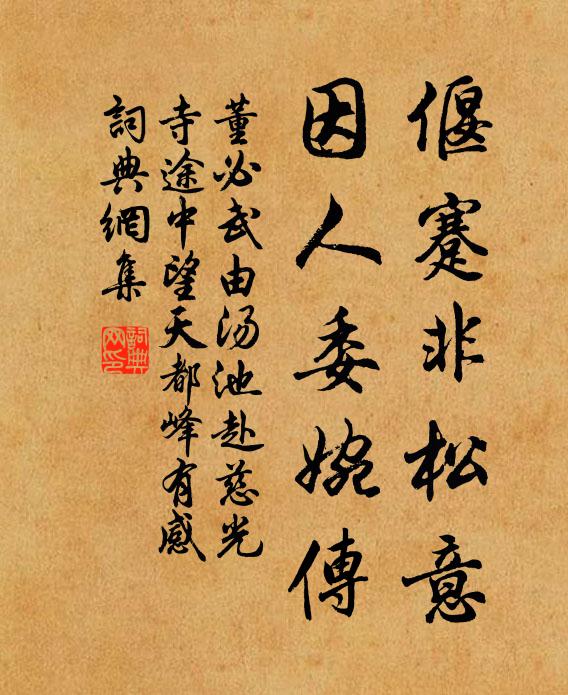 偃蹇非松意
因人委婉傳
董必武由湯池赴慈光
寺途中望天都峰有感
詞典網集
詞典网印